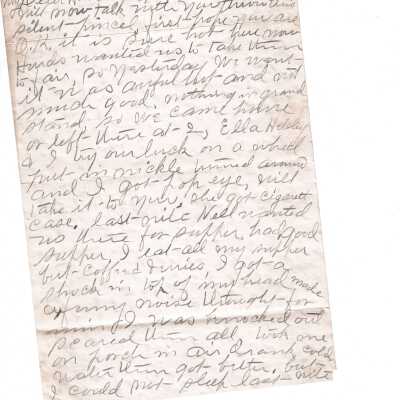 will now talk with you
silent pencil, first hope you are
O.K. it is sure hot here now
wanted us to take them
to fair, so yesterday we went
it is as awful hot and not
much good, nothing in grand
stand, so we came home
or left there at 2, Ella
& I try our luck on a wheel
put in nickle turned around
and I got pop eye, will
take it to you, she got Cigarett
case. last nite Nell wanted
us there for supper, had good
supper, I eat all my supper
but Coffee & I got a
shock in top of my head made
a funny noise thought for
I was knocked out
scared them all, took me
on porch in air drank cold
water then got better. but
I could not sleep last nite